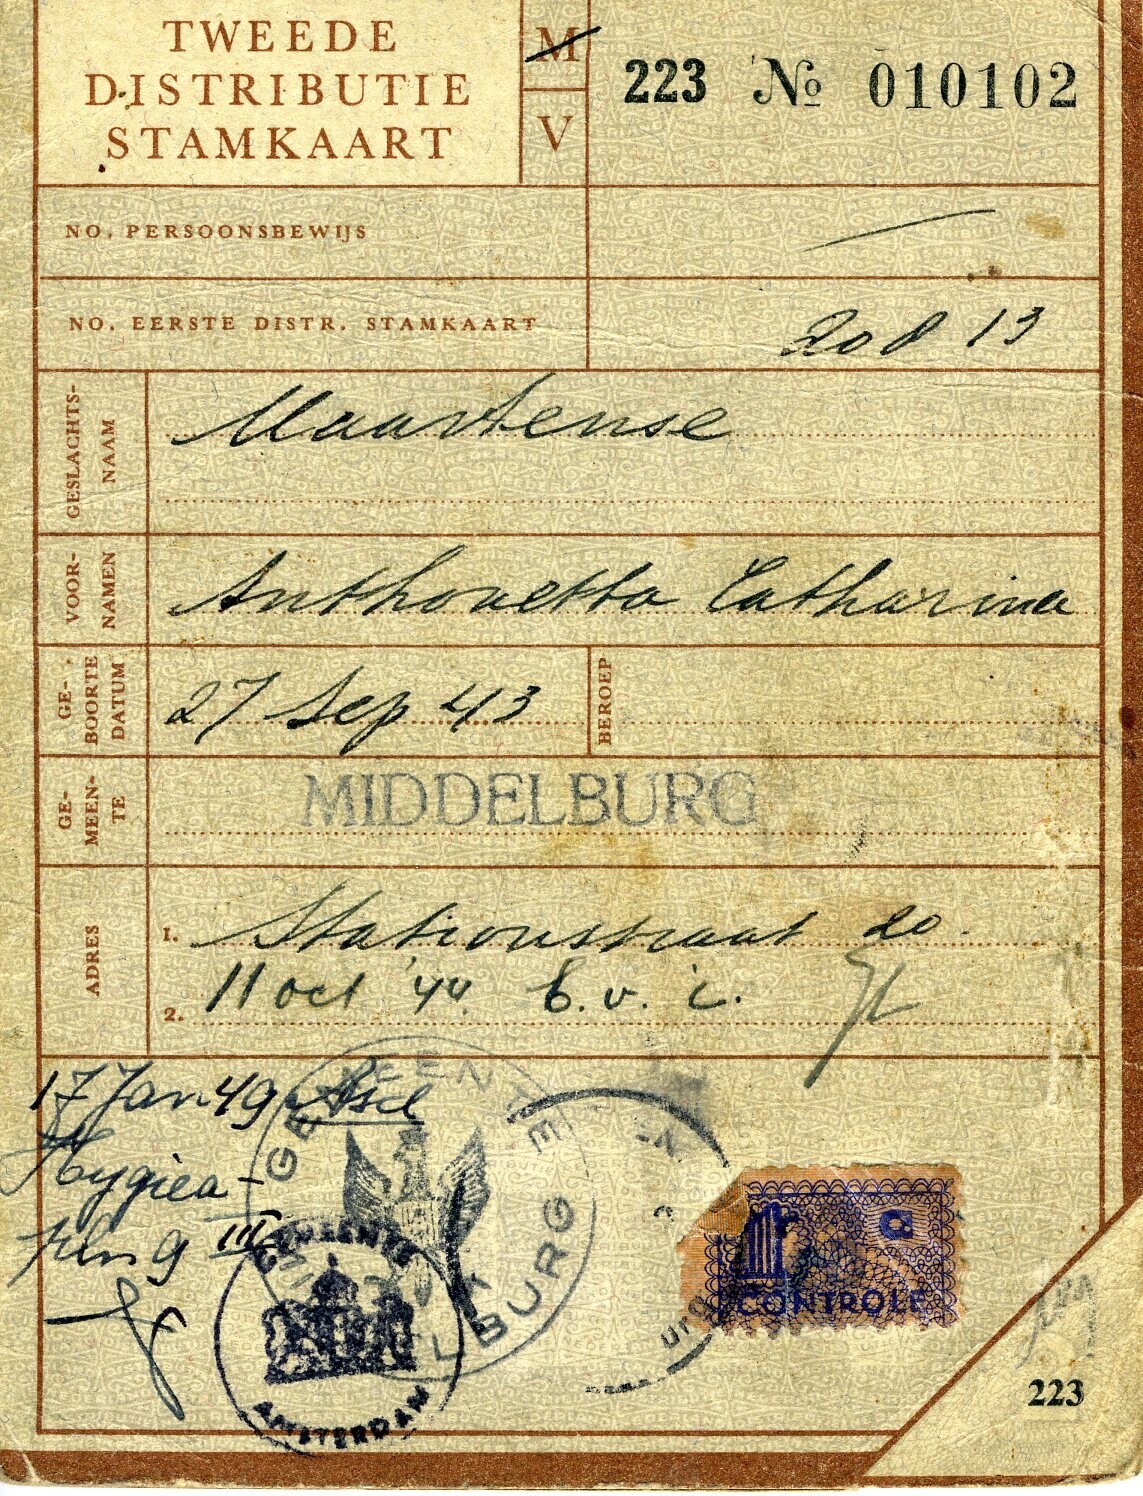 TWEEDE
DISTRIBUTIE
STAMKAART
M
V
223 No 010102
NO. PERSOONSBEWIJS
NO. EERSTE DISTR. STAMKAART
GESLACHTS-
NAAM
Maartense
VOOR-
NAMEN
Anthonetta Catharina
GE-
BOORTE
DATUM
27 Sep 43
BEROEP
GE-
MEEN-
TE
MIDDELBURG
ADRES
1. Stationsstraat 20
2. 11 oct '44
17 Jan 49
Hygiea-
pln 9 III
GEMEENTE
GEMEENTE
AMSTERDAM
CONTROLE
223